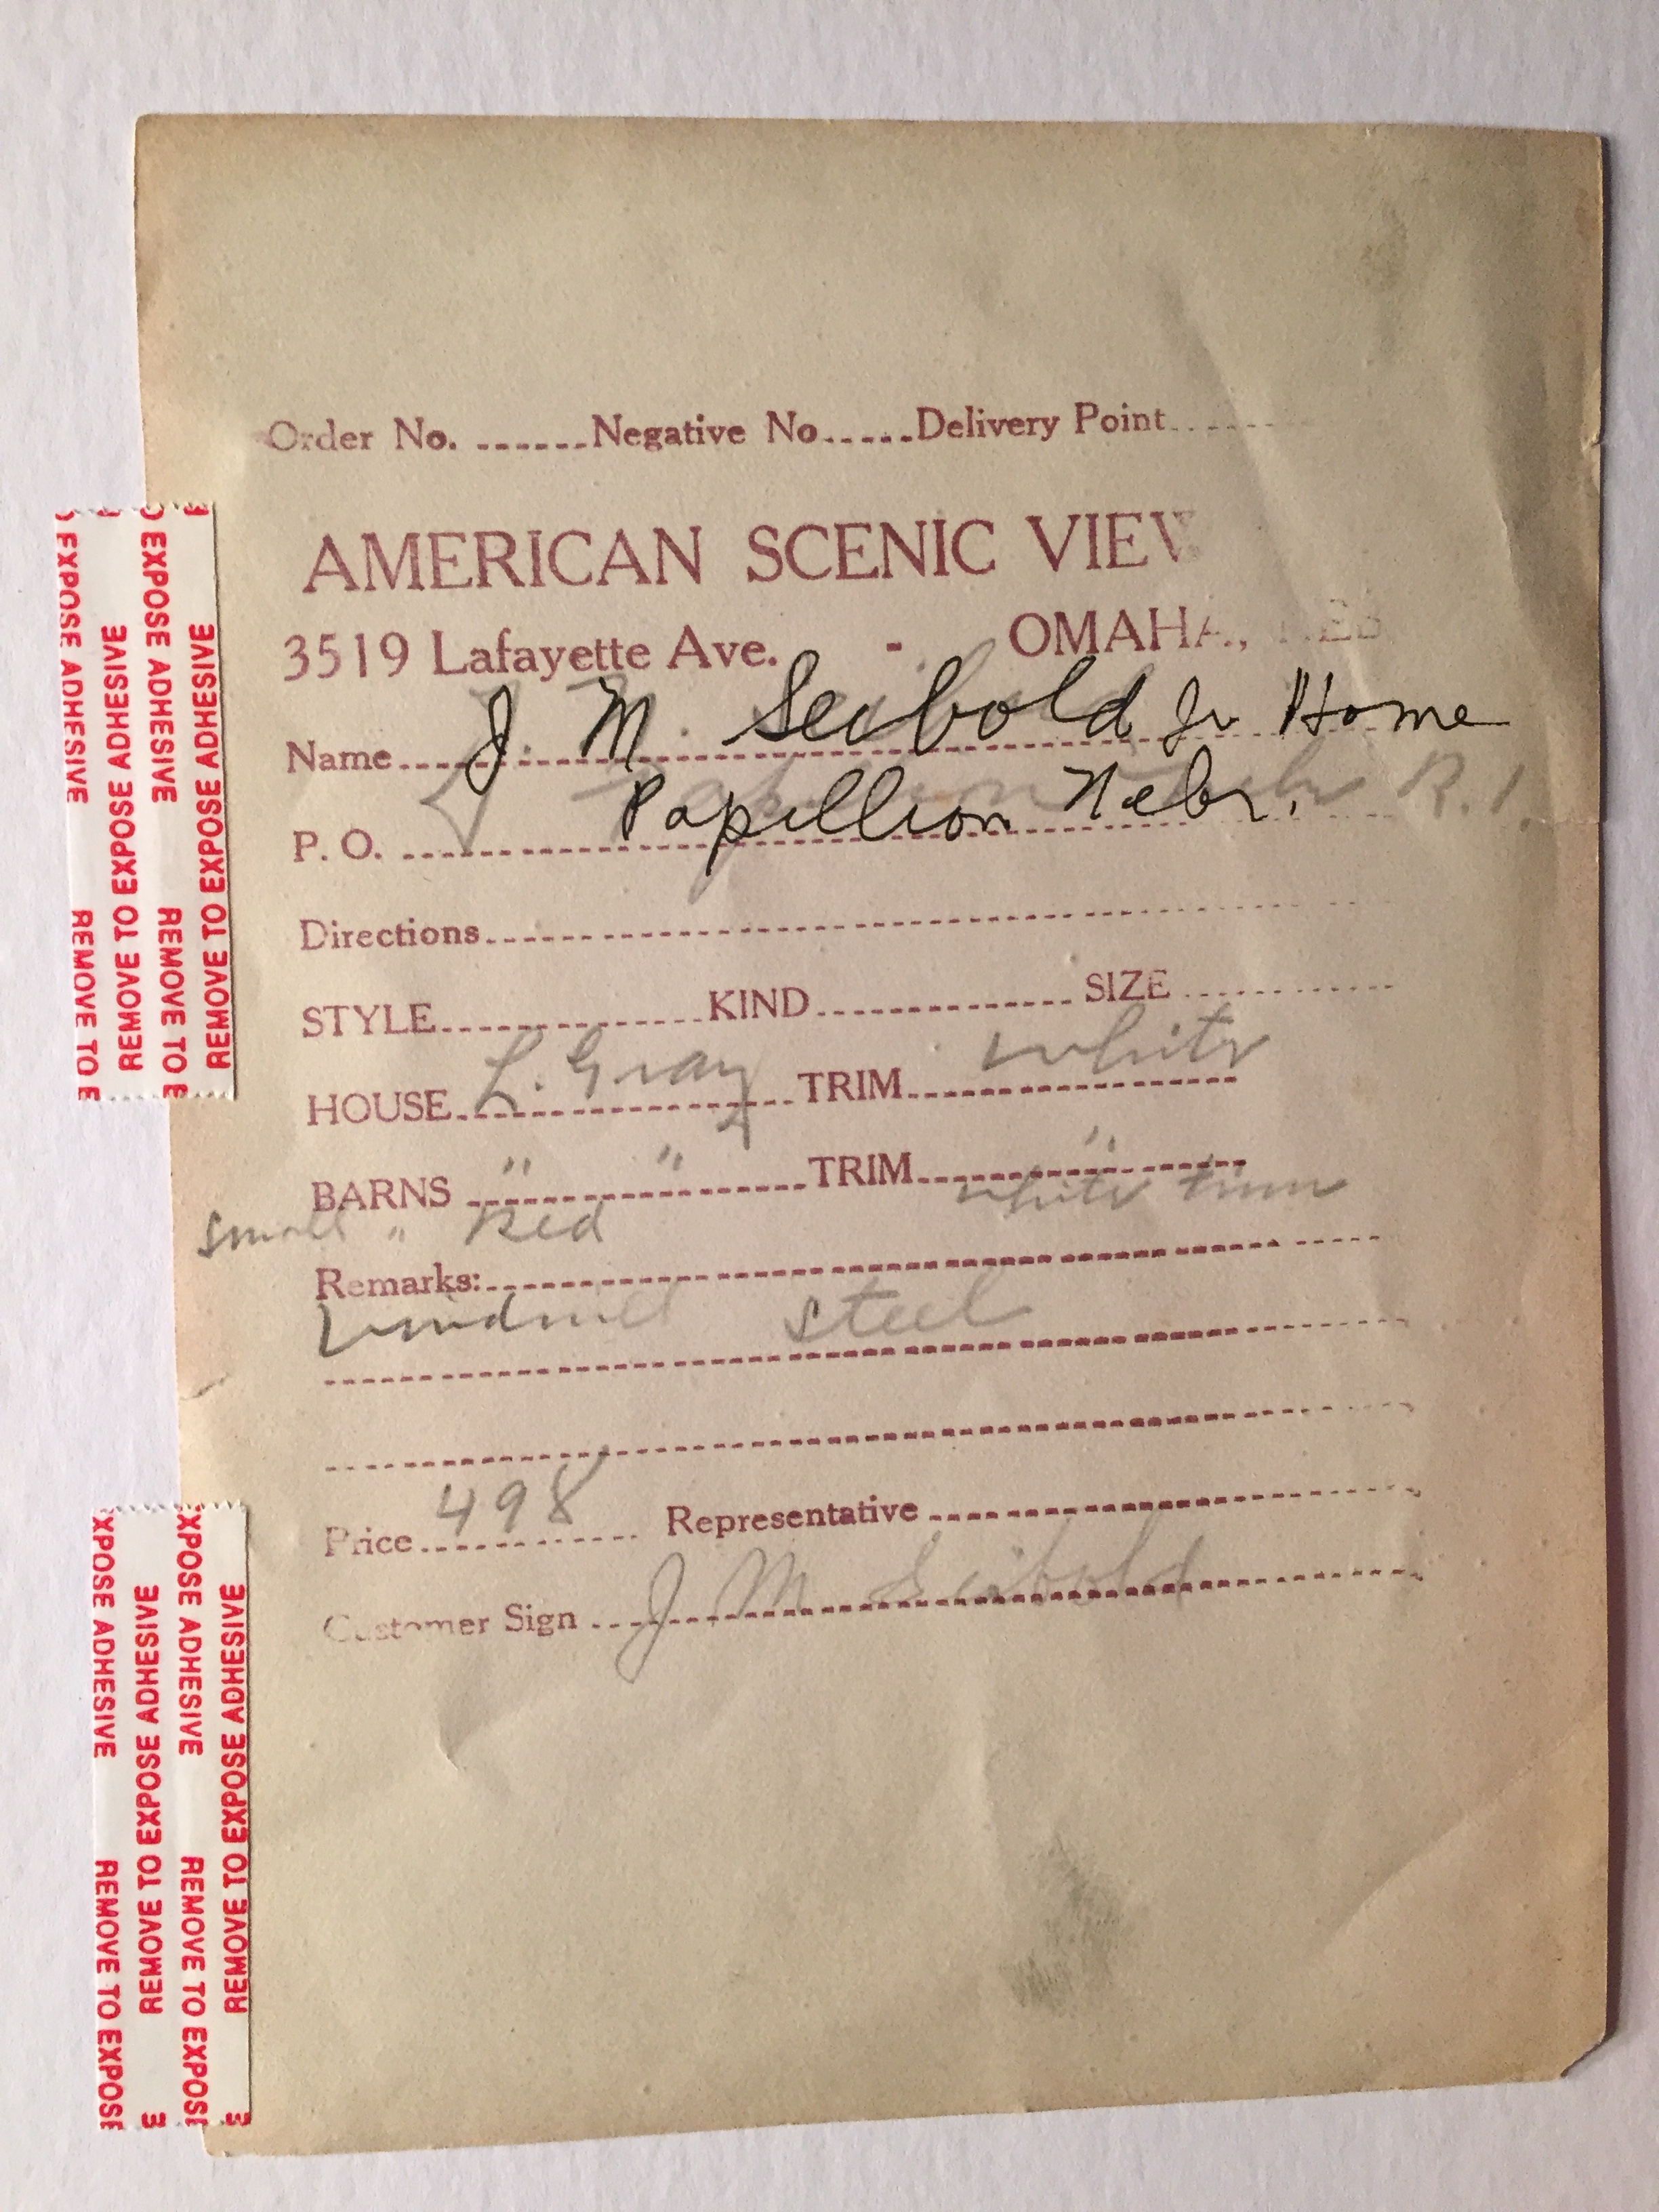 Order No. ......Negative No.....Delivery Point........
AMERICAN SCENIC VIEW
3519 Lafayette Ave. - OMAHA, NEB
Name J. M. Seibold Jr Home
P. O. Papillion Nebr. R. 1.
Directions
STYLE KIND SIZE
HOUSE L. Gray TRIM white
BARNS " " TRIM "
small " Red white trim
Remarks:
Windmill steel
Price 498 Representative
Customer Sign J M Seibold
EXPOSE ADHESIVE REMOVE TO E
REMOVE TO EXPOSE ADHESIVE
EXPOSE ADHESIVE REMOVE TO E
REMOVE TO EXPOSE ADHESIVE
XPOSE ADHESIVE REMOVE TO EXPOSE
REMOVE TO EXPOSE ADHESIVE
XPOSE ADHESIVE REMOVE TO EXPOSE
REMOVE TO EXPOSE ADHESIVE